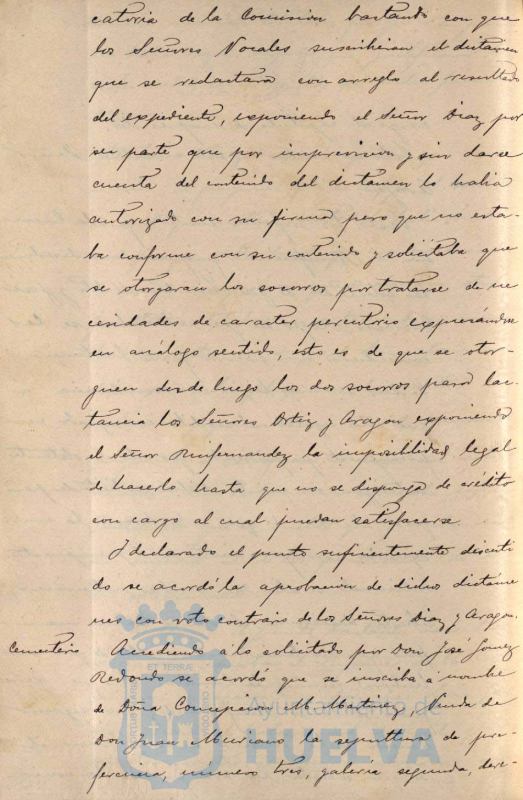 catoria de la Comision bastando con que
los Señores Vocales suscribieran el dictamen
que se redactara con arreglo al resultado
del expediente, exponiendo el Señor Diaz por
su parte que por imprevision y sin darse
cuenta del contenido del dictamen lo habia
autorizado con su firma pero que no esta-
ba conforme con su contenido y solicitaba que
se otorgaran los socorros por tratarse de ne
cesidades de caracter perentorio expresándose
en análogo sentido, esto es de que se otor-
guen desde luego los dos socorros para lac-
tancia los Señores Ortiz y Aragon exponiendo
el Señor Rufernandez la imposiblidad legal
de hacerlo hasta que no se disponga de crédito
con cargo al cual puedan satisfacerse.
Y declarado el punto suficientemente discuti
do se acordó la aprobacion de dichos dictáme
nes con voto contrario de los Señores Diaz y Aragon.
Cementerio Accediendo á lo solicitado por Don José Gomez
Redondo se acordó que se inscriba á nombre
de Doña Concepcion M. Martinez, Viuda de
Don Juan Muriano la sepultura de pre-
ferencia, número tres, galería segunda, dere-
ET TERRÆ
Ayuntamiento de
HUELVA